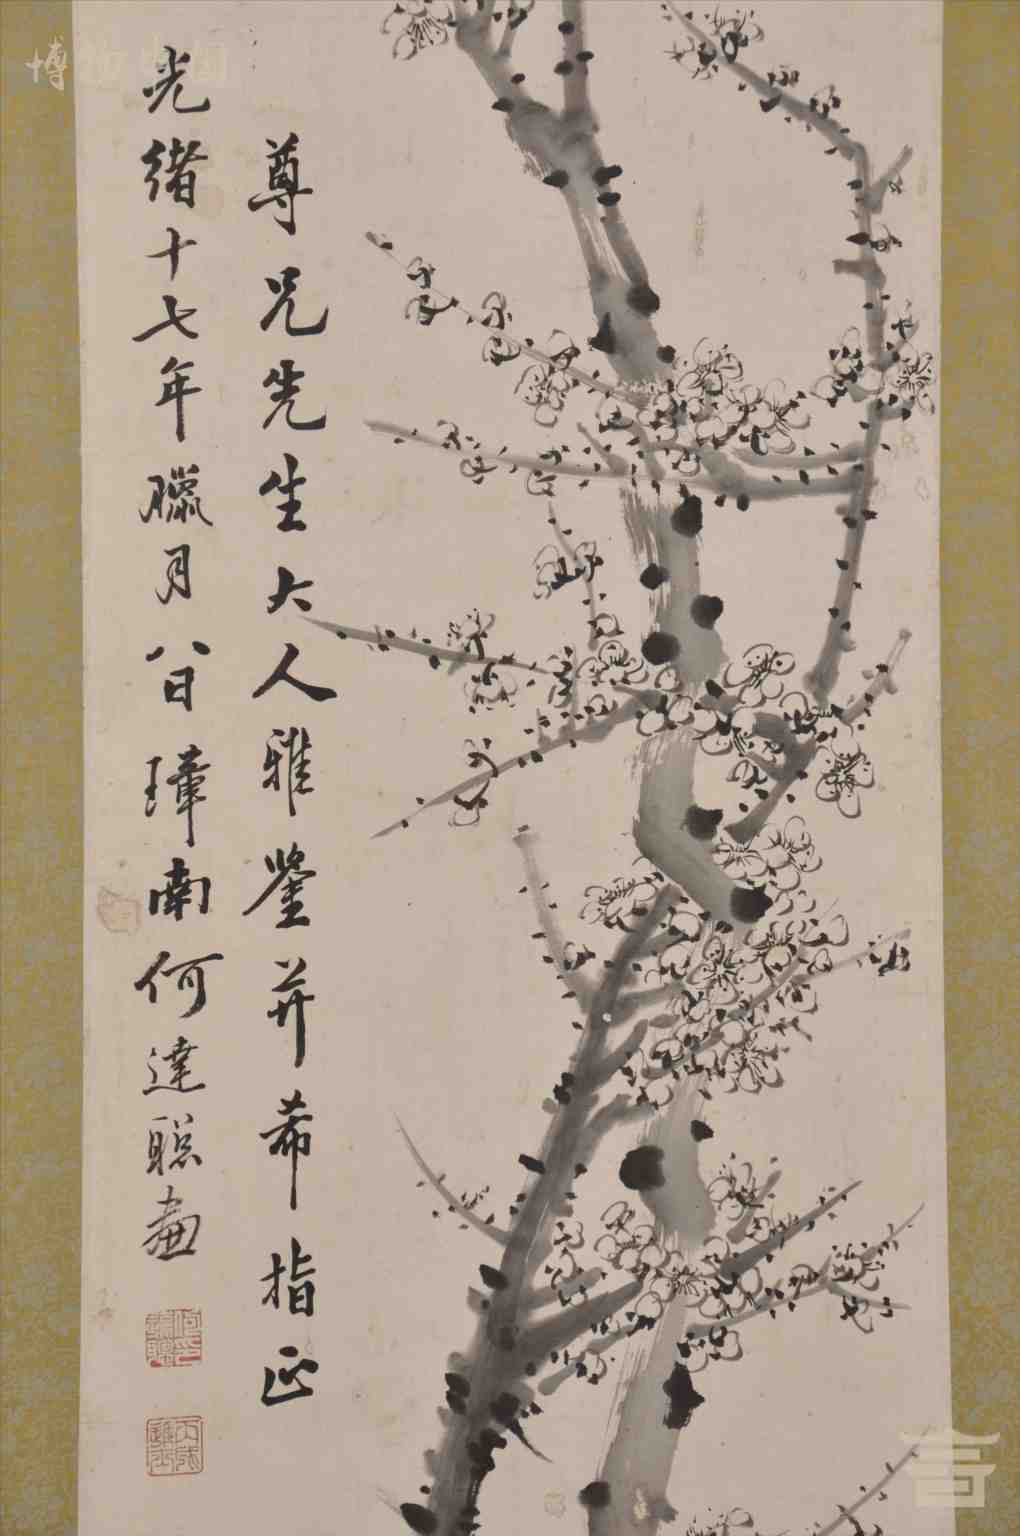 尊兄先生大人雅鑒并希指正
光緒十七年臘月八日璋南何達聰畫
博物中国